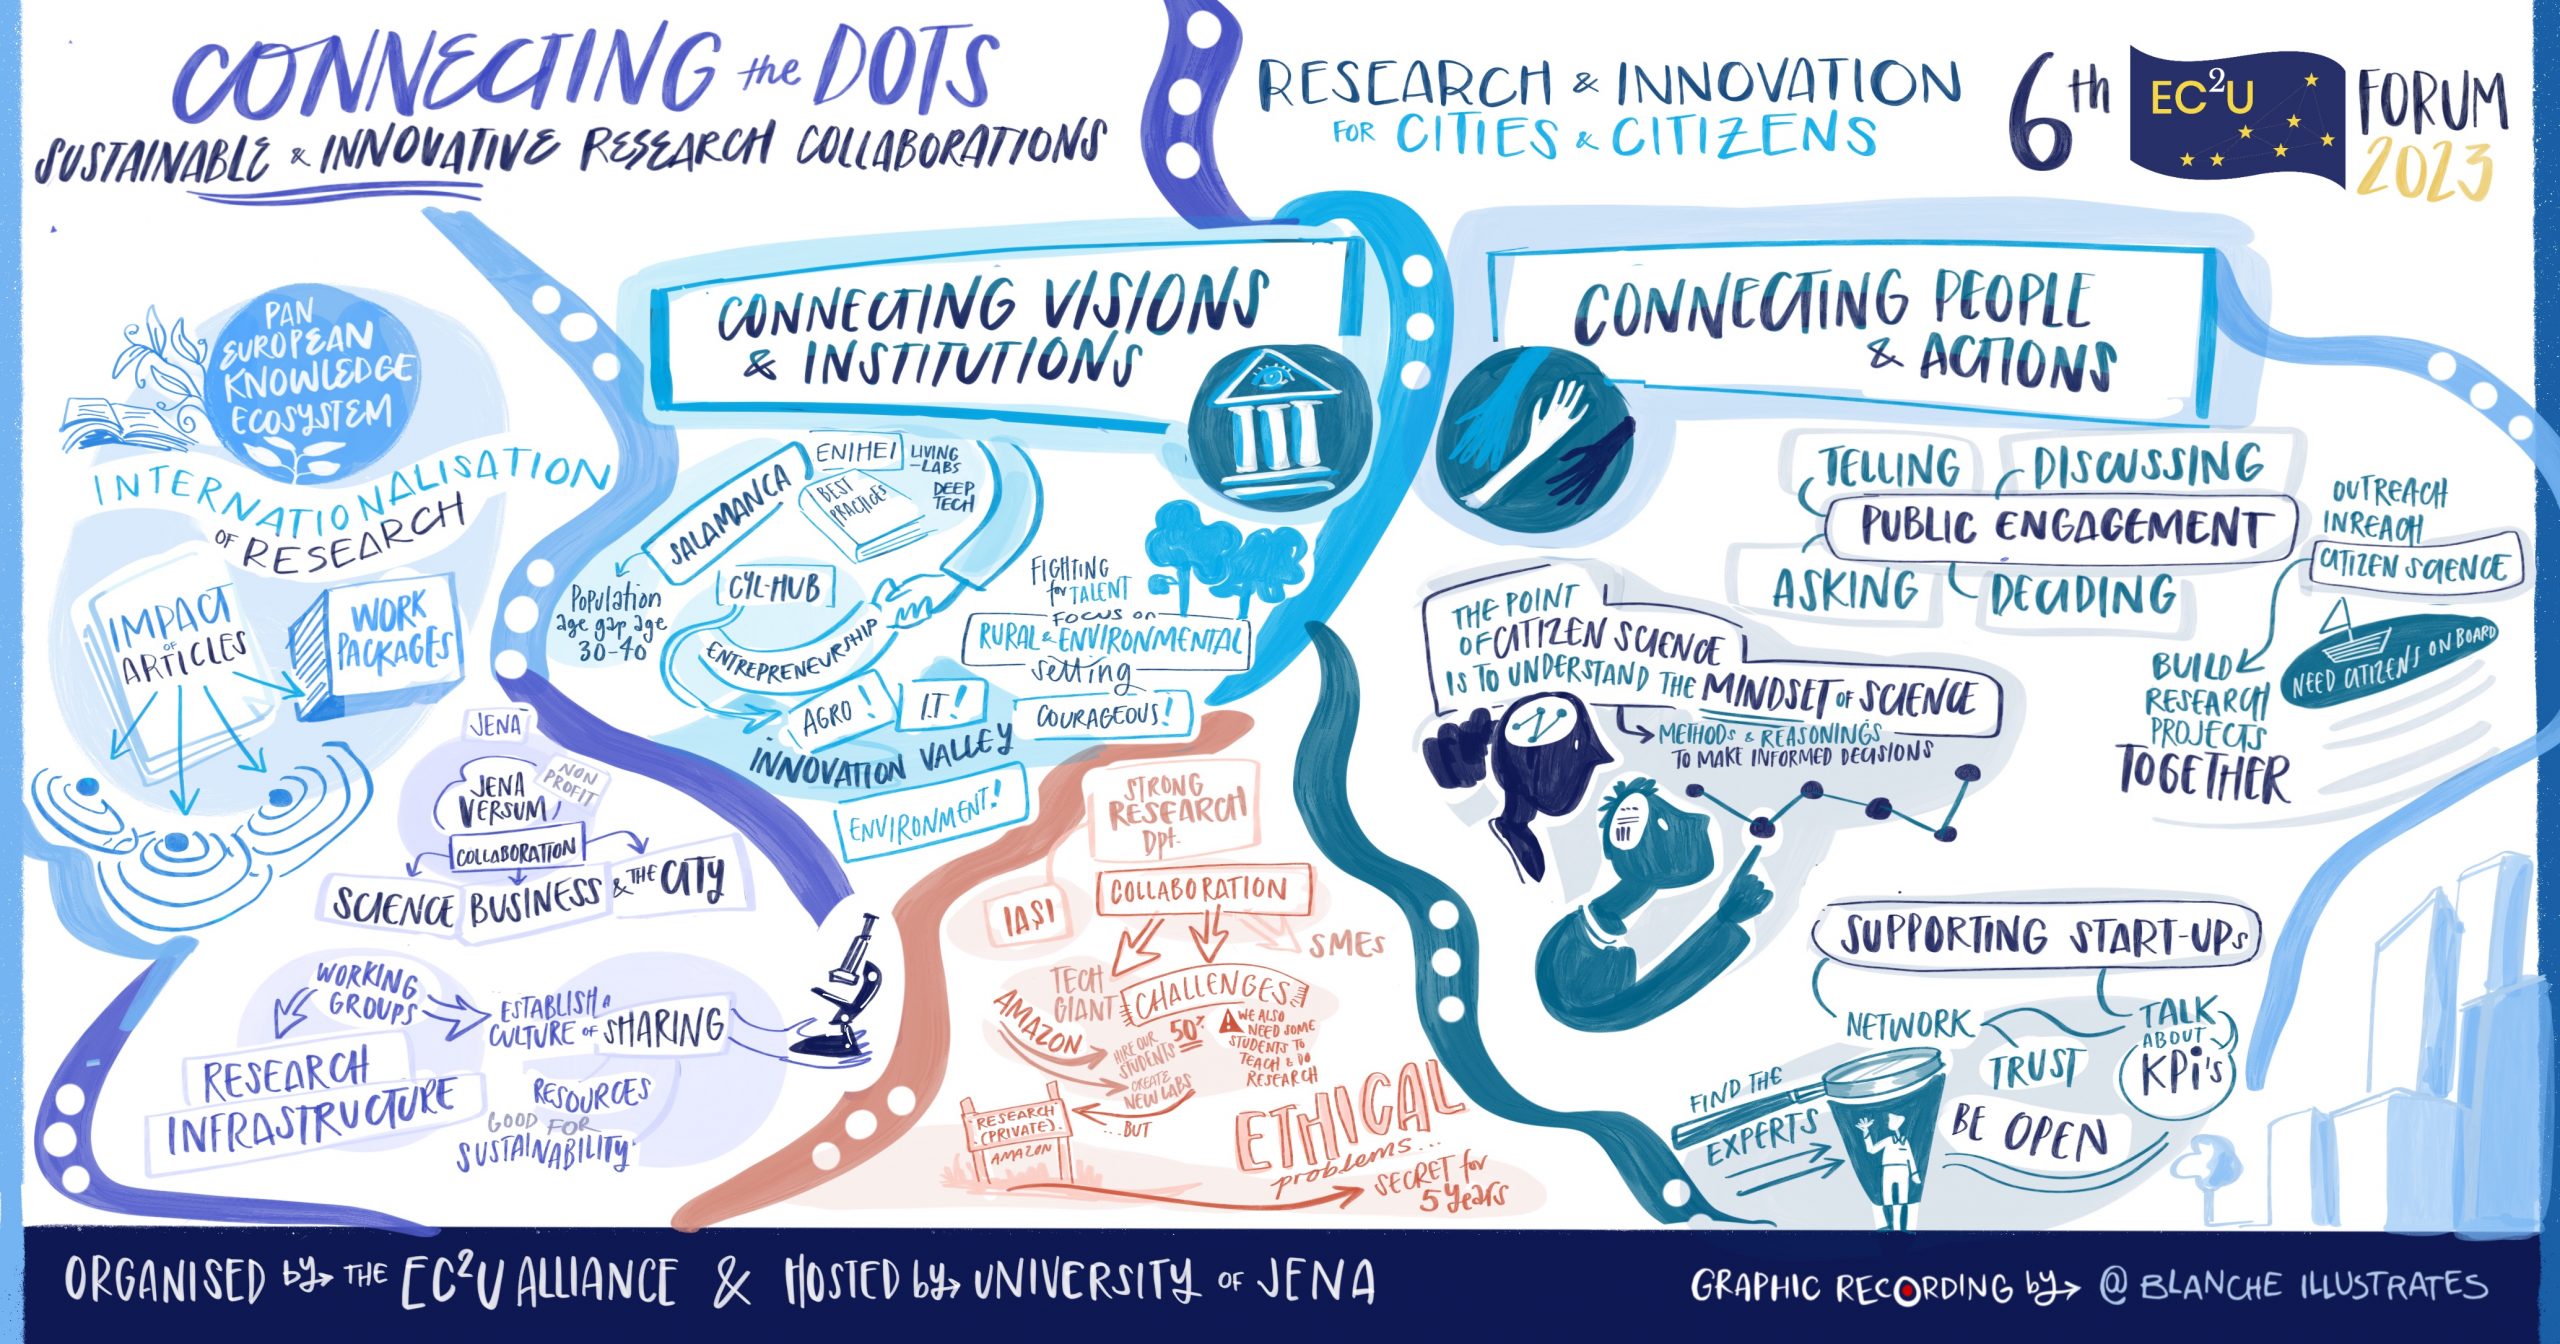 CONNECTING the DOTS
SUSTAINABLE & INNOVATIVE RESEARCH COLLABORATIONS
RESEARCH & INNOVATION
FOR CITIES & CITIZENS
6th
EC²U
FORUM
2023
PAN
EUROPEAN
KNOWLEDGE
ECOSYSTEM
INTERNATIONALISATION
OF RESEARCH
IMPACT
OF
ARTICLES
WORK
PACKAGES
JENA
JENA
VERSUM
NON
PROFIT
COLLABORATION
SCIENCE BUSINESS & THE CITY
WORKING
GROUPS
ESTABLISH A
CULTURE OF SHARING
RESEARCH
INFRASTRUCTURE
RESOURCES
GOOD FOR
SUSTAINABILITY
CONNECTING VISIONS
& INSTITUTIONS
SALAMANCA
ENIHEI
LIVING
-LABS
DEEP
TECH
BEST
PRACTICES
Population
age gap age
30-40
CYL-HUB
ENTREPRENEURSHIP
FIGHTING
for TALENT
FOCUS on
RURAL & ENVIRONMENTAL
setting
AGRO!
I.T!
COURAGEOUS!
INNOVATION VALLEY
ENVIRONMENT!
STRONG
RESEARCH
Dpt.
IAȘI
COLLABORATION
SMEs
TECH
GIANT
AMAZON
CHALLENGES
HIRE OUR
STUDENTS
50%
CREATE
NEW LABS
WE ALSO
NEED SOME
STUDENTS TO
TEACH & DO
RESEARCH
RESEARCH
(PRIVATE)
AMAZON
...BUT
ETHICAL
problems...
SECRET for
5 years
CONNECTING PEOPLE
& ACTIONS
TELLING
DISCUSSING
PUBLIC ENGAGEMENT
ASKING
DECIDING
OUTREACH
INREACH
CITIZEN SCIENCE
NEED CITIZENS ON BOARD
BUILD
RESEARCH
PROJECTS
TOGETHER
THE POINT
OF CITIZEN SCIENCE
IS TO UNDERSTAND THE MINDSET OF SCIENCE
METHODS & REASONINGS
TO MAKE INFORMED DECISIONS
SUPPORTING START-UPs
NETWORK
TALK
ABOUT
KPi's
TRUST
BE OPEN
FIND THE
EXPERTS
ORGANISED by THE EC²U ALLIANCE & HOSTED by UNIVERSITY OF JENA
GRAPHIC RECORDING by @ BLANCHE ILLUSTRATES